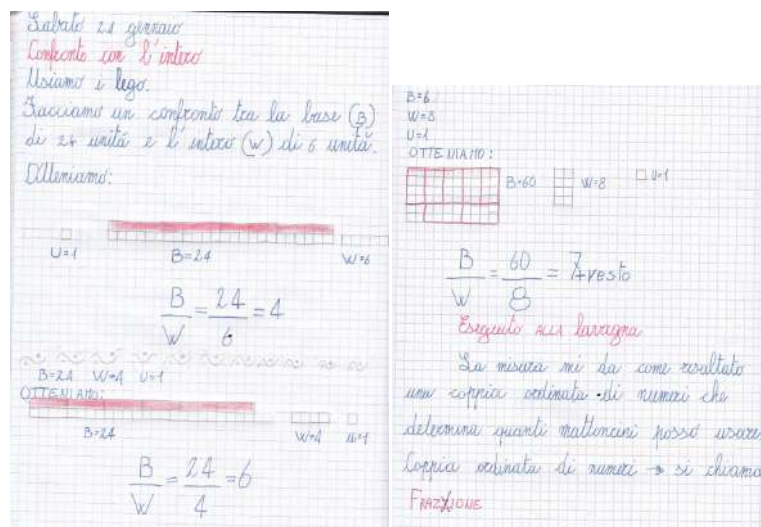 Sabato 21 gennaio
Confronto con l'intero
Usiamo i lego.
Facciamo un confronto tra la base (B)
di 24 unità e l'intero (W) di 6 unità.
Otteniamo:
U=1 B=24 W=6
B/W = 24/6 = 4
B=24 W=4 U=1
OTTENIAMO:
B=24 W=4 U=1
B/W = 24/4 = 6
B=6
W=8
U=1
OTTENIAMO:
B=60 W=8 U=1
B/W = 60/8 = 7+resto
Eseguito ALLA lavagna
La misura mi da come resultato
una coppia ordinata di numeri che
determina quanti mattoncini posso usare.
Coppia ordinata di numeri → si chiama
FRAZIONE